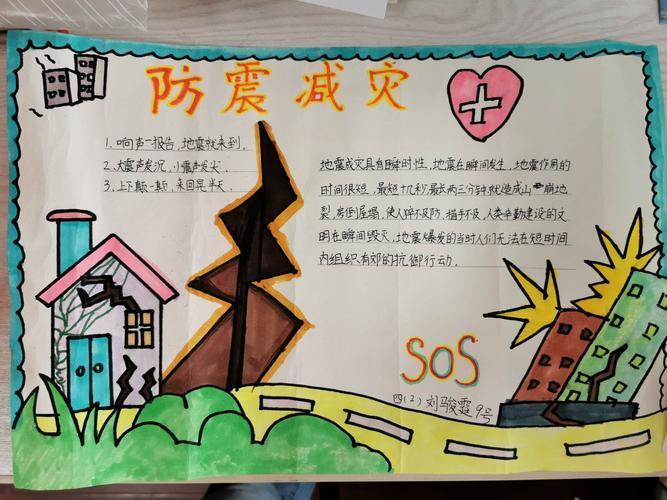 防震减灾
1. 响声一报告，地震就来到.
2. 大震声发沉，小震声发尖.
3. 上下颠一颠，来回晃半天.
地震成灾具有瞬时性，地震在瞬间发生，地震作用的
时间很短，最短十几秒，最长两三分钟就造成山崩地
裂，房倒屋塌，使人猝不及防、措手不及，人类辛勤建设的文
明在瞬间毁灭，地震爆发的当时人们无法在短时间
内组织有郊的抗御行动.
SOS
四(2) 刘骏霆 9号